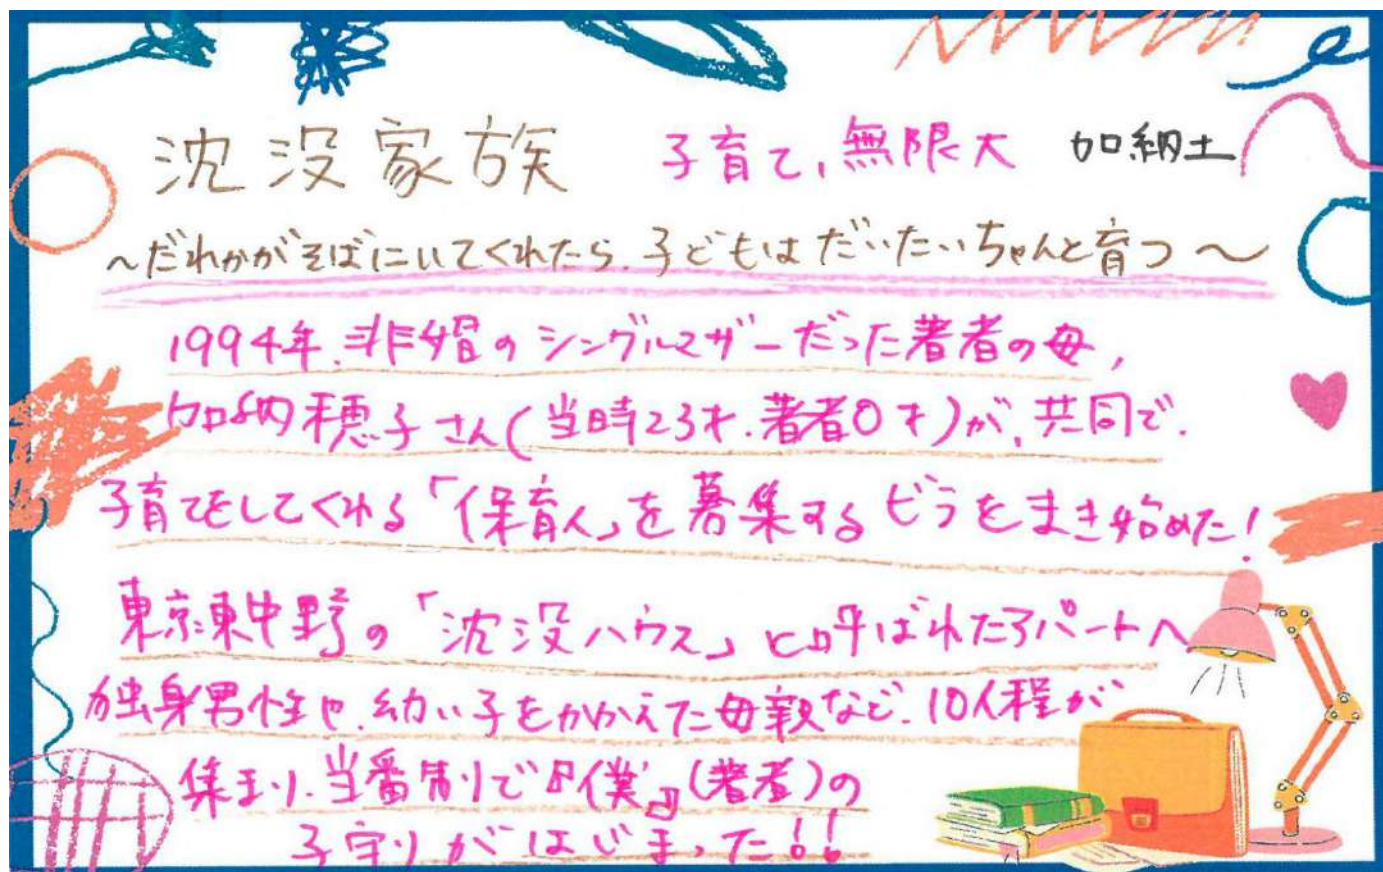 沈没家族 子育て、無限大 加納土
～だれかがそばにいてくれたら、子どもはだいたいちゃんと育つ～
1994年、非婚のシングルマザーだった著者の母、
加納穂子さん(当時23才、著者0才)が、共同で、
子育てをしてくれる「保育人」を募集するビラをまき始めた!
東京東中野の「沈没ハウス」と呼ばれたアパートへ
独身男性や、幼い子をかかえた母親など、10人程が
集まり、当番制で『僕』(著者)の
子守りがはじまった!!